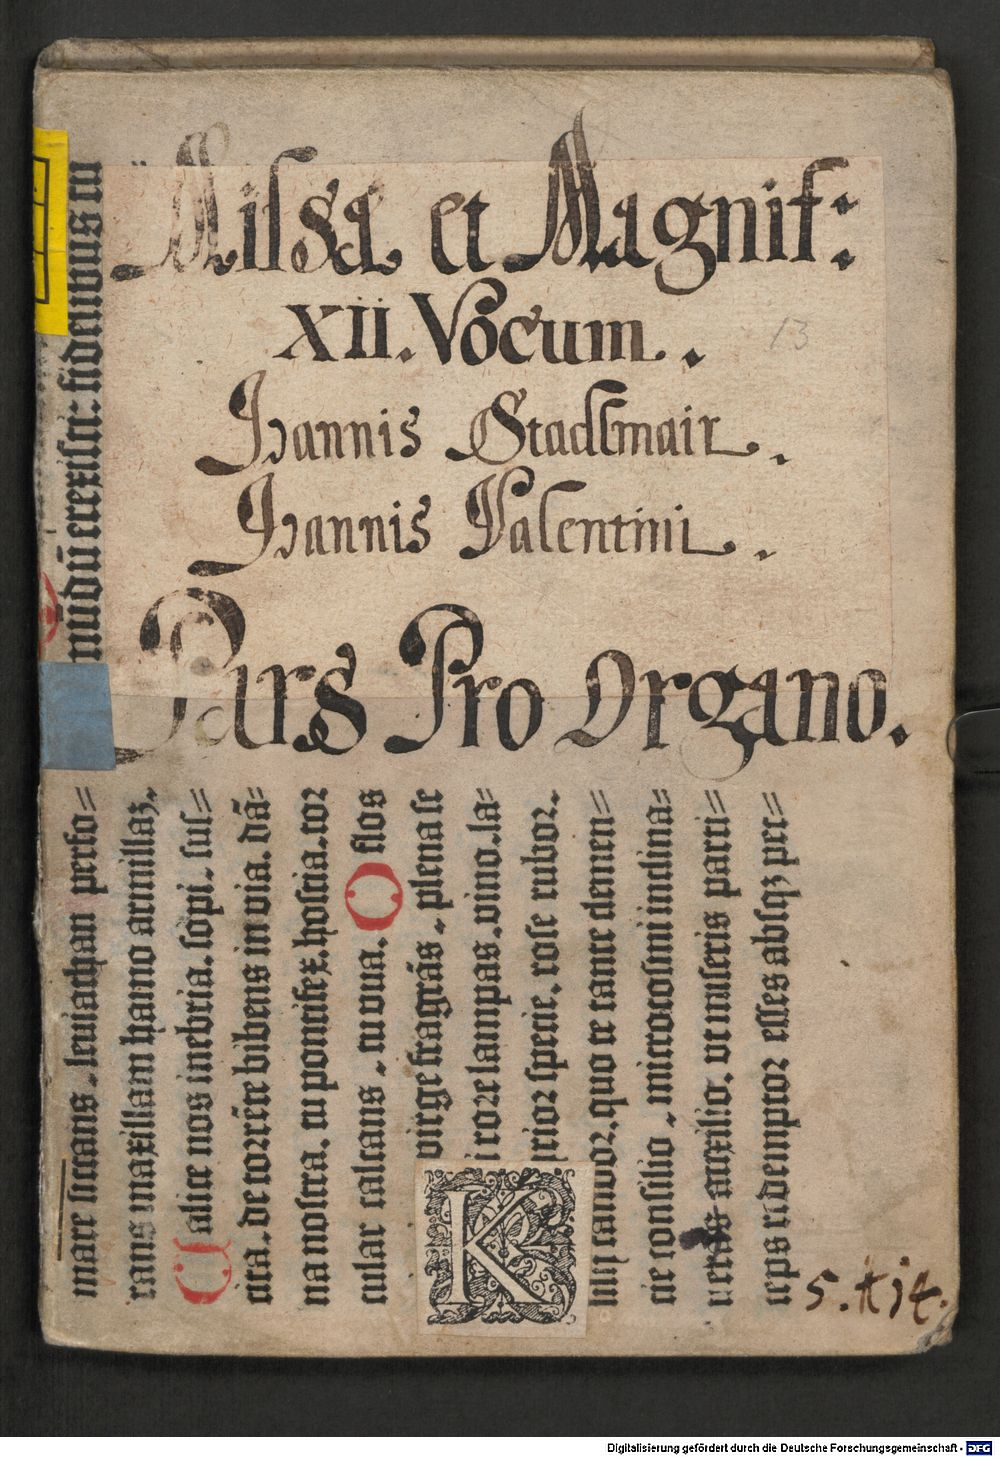 Missæ et Magnif:
XII. Vocum.
13
Joannis Stadlmair.
Joannis Valentini.
Pars Pro Organo.
mūdū erexisti: fidelibus tu
mare siccans, leviathan perfo=
rans maxillam hamo armillaz.
Calice nos inebria, sopi, sus=
cita, de torrēte bibens in via, dā=
na nostra, tu pontifex, hostia, tor
cular calcans, tu uva. O flos
virge fragrās, plena se
rore lampas, vino, la=
specie, rose rubor.
amor, quo te tante clemen=
cie consilio, microcosmi inclina=
veras auxilio, ut miseris parti=
ceps redemptor esses absqz pec=
K
5. #14.
Digitalisierung gefördert durch die Deutsche Forschungsgemeinschaft - DFG